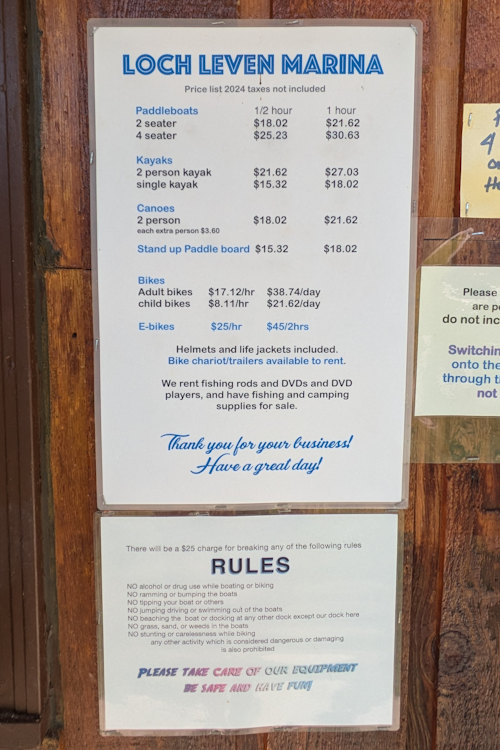 LOCH LEVEN MARINA
Price list 2024 taxes not included
Paddleboats 1/2 hour 1 hour
2 seater $18.02 $21.62
4 seater $25.23 $30.63
Kayaks
2 person kayak $21.62 $27.03
single kayak $15.32 $18.02
Canoes
2 person $18.02 $21.62
each extra person $3.60
Stand up Paddle board $15.32 $18.02
Bikes
Adult bikes $17.12/hr $38.74/day
child bikes $8.11/hr $21.62/day
E-bikes $25/hr $45/2hrs
Helmets and life jackets included.
Bike chariot/trailers available to rent.
We rent fishing rods and DVDs and DVD
players, and have fishing and camping
supplies for sale.
Thank you for your business!
Have a great day!
There will be a $25 charge for breaking any of the following rules
RULES
NO alcohol or drug use while boating or biking
NO ramming or bumping the boats
NO tipping your boat or others
NO jumping driving or swimming out of the boats
NO beaching the boat or docking at any other dock except our dock here
NO grass, sand, or weeds in the boats
NO stunting or carelessness while biking
any other activity which is considered dangerous or damaging
is also prohibited
PLEASE TAKE CARE OF OUR EQUIPMENT
BE SAFE AND HAVE FUN!
4
Please
are
do not
onto the
through
not